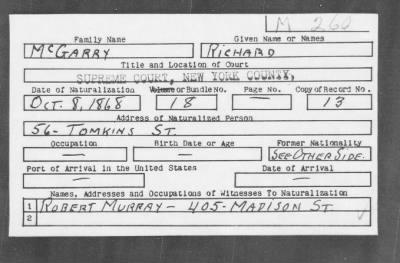 M 260
Family Name Given Name or Names
McGARRY RICHARD
Title and Location of Court
SUPREME COURT, NEW YORK COUNTY,
Date of Naturalization Volume or Bundle No. Page No. Copy of Record No.
OCT. 8, 1868 18 — 13
Address of Naturalized Person
56 - TOMKINS ST.
Occupation Birth Date or Age Former Nationality
— — SEE OTHER SIDE.
Port of Arrival in the United States Date of Arrival
— —
Names, Addresses and Occupations of Witnesses To Naturalization
1 ROBERT MURRAY - 405 - MADISON ST
2